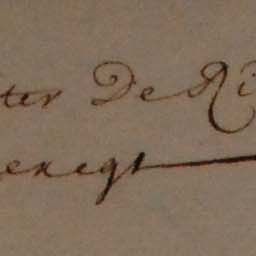 ter De Ri
enegt